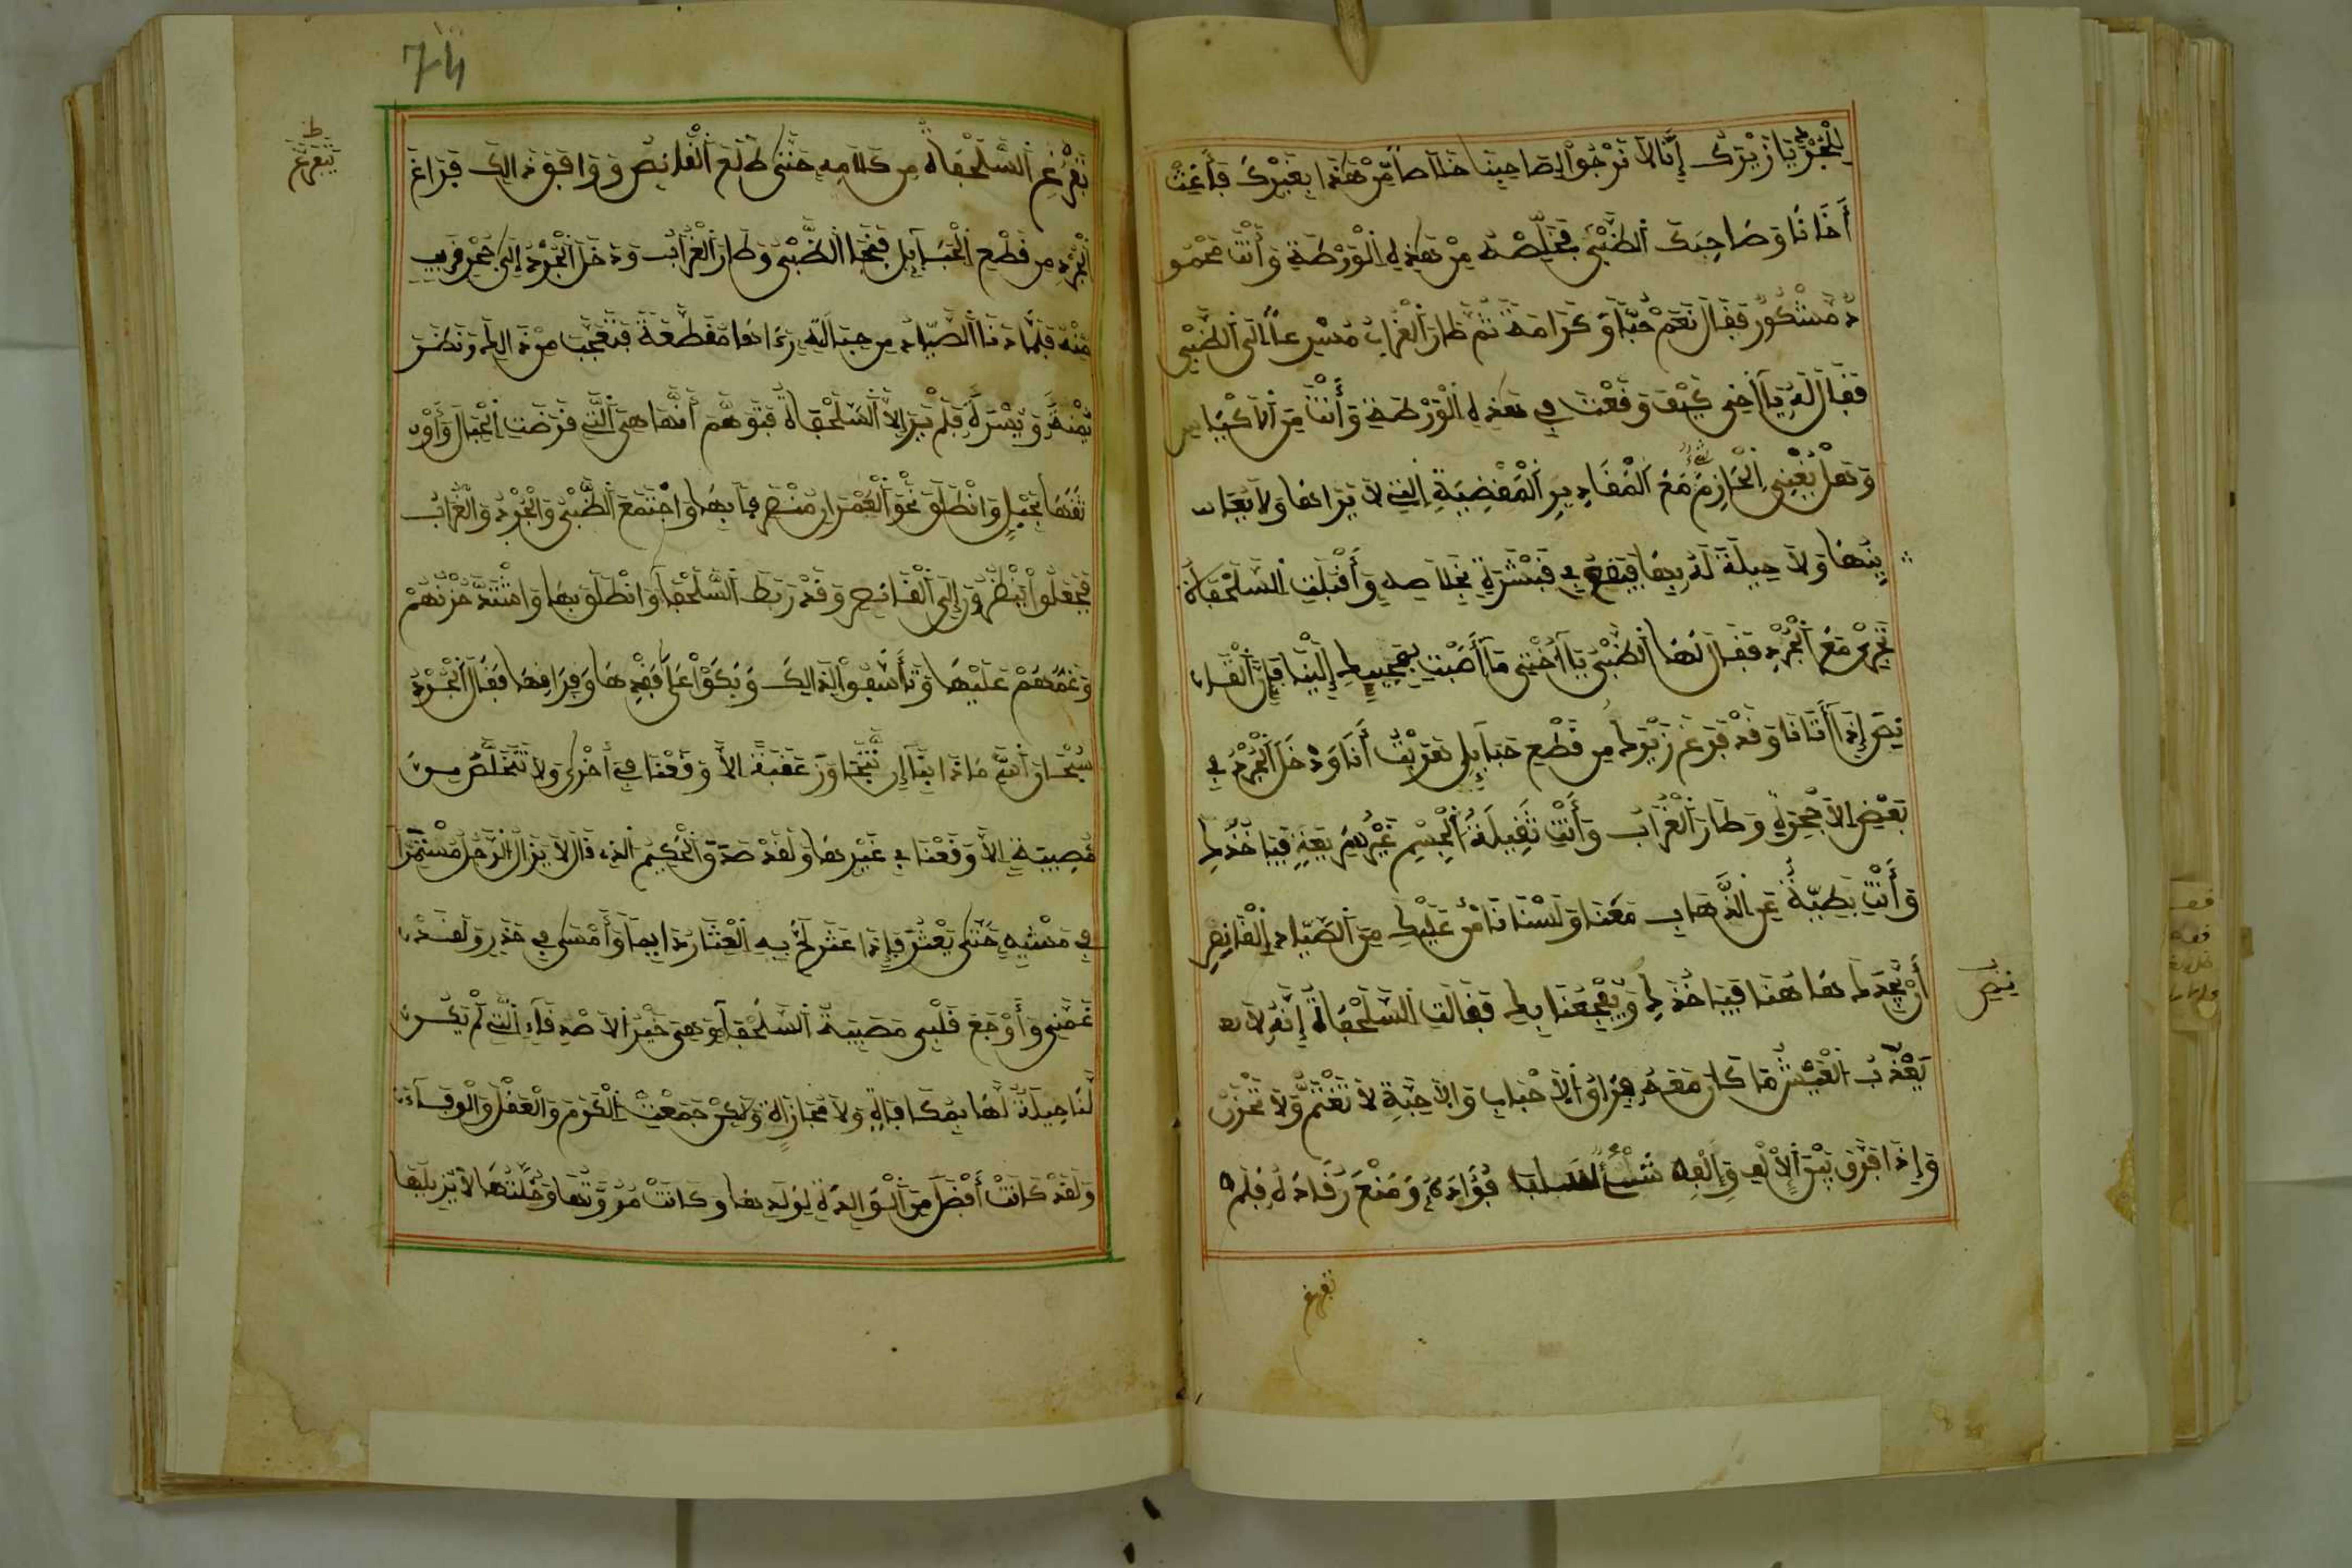 لِلْجُرْذِ يَا زِيْرَكُ إِنَّا لاَ نَرْجُوا لِصَاحِبِنَا خَلاَصاً مِّنْ هَذَا بِغَيْرِكَ فَأَغِثْ
أَخَانَا وَصَاحِبَكَ الظَّبْيَ فَخَلِّصْهُ مِنْ هَذِهِ الْوَرْطَةِ وَأَنْتَ مَحْمُو
دٌ مَشْكُورٌ فَقَالَ نَعَمْ حُبّاً وَكَرَامَةً ثُمَّ طَارَ الْغُرَابُ مُسْرِعاً إِلَى الظَّبْيِ
فَقَالَ لَهُ يَا أَخِي كَيْفَ وَقَعْتَ فِي هَذِهِ الْوَرْطَةِ وَأَنْتَ مِنَ الأَكْيَاسِ
وَهَلْ يُغْنِي الْحَازِمُ مَعَ الْمَقَادِيرِ الْمُقْضِيَةِ الَّتِي لاَ يَرَاهَا وَلاَ يُعَا
يِنُهَا وَلاَ حِيلَةَ لَهُ بِهَا فِي فَبَشَّرَهُ بِخَلاَصِهِ وَأَقْبَلَتِ السُّلَحْفَاةُ
تَجْرِي مَعَ الْجُرْذِ فَقَالَ لَهَا الظَّبْيُ يَا أُخْتِي مَا أَصَبْتِ بِمَجِيئِكِ إِلَيْنَا فَإِنَّ الْقَا
نِصَ إِذَا أَتَانَا وَقَدْ فَرَغَ زِيْرَكُ مِن قَطْعِ حَبَآئِلِي هَرَبْتُ أَنَا وَدَخَلَ الْجُرْذُ فِي
بَعْضِ الأَجْحِرَةِ وَطَارَ الْغُرَابُ وَأَنْتِ ثَقِيلَةُ الْجِسْمِ غَيْرُ سَرِيعَةٍ فَيَأْخُذُكِ
وَأَنْتِ بَطِيَّةٌ عَنِ الذَّهَابِ مَعَنَا وَلَسْنَا نَأْمَنُ عَلَيْكِ مِنَ الصَّيَّادِ الْقَانِصِ
أَنْ يَّجِدَكِ هَاهُنَا فَيَأْخُذَكِ وَيُفْجِعَنَا بِكِ فَقَالَتِ السُّلَحْفَاةُ إِنَّهُ لاَ
يَعْذُبُ الْعَيْشُ مَا كَانَ مَعَهُ فِرَاقُ الأَحْبَابِ وَالأَحِبَّةِ لاَ تَغْتَمَّ وَلاَ تَحْزَنْ
وَإِذَا فَرَّقَ بَيْنَ الأَلِيفِ وَإِلْفِهِ فُؤَادَهُ وَمُنِعَ رُقَادَهُ فَلَمْ
تفرغ
ينص
74
تَفْرُغِ السُّلَحْفَاةُ مِن كَلاَمِهِ حَتَّى طَلَعَ الْقَانِصُ وَوَافَقَ ذَالِكَ فَرَاغَ
الْجُرْذِ مِن قَطْعِ الْحَبَآئِلِ فَنَجَا الظَّبْيُ وَطَارَ الْغُرَابُ وَدَخَلَ الْجُرْذُ إِلَى جُحْرٍ قَرِيبٍ
مِّنْهُ فَلَمَّا دَنَا الصَّيَّادُ مِن حِبَالَتِهِ رَءَاهَا مُقَطَّعَةً فَتَعَجَّبَ مِنْ ذَالِكَ وَنَظَرَ
يَمْنَةً وَيَسْرَةً فَلَمْ يَرَ إِلاَّ السُّلَحْفَاةَ فَتَوَهَّمَ أَنَّهَا هِيَ الَّتِي قَرَضَتِ الْحِبَالَ وَأَوْ
ثَقَهَا بِحَبْلٍ وَانْطَلَقَ نَحْوَ الْعُمْرَانِ مُنْصَرِفًا بِهَا وَاجْتَمَعَ الظَّبْيُ وَالْجُرْذُ وَالْغُرَابُ
فَجَعَلُوا يَنْظُرُونَ إِلَى الْقَانِصِ وَقَدْ رَبَطَ السُّلَحْفَاةَ وَانْطَلَقَ بِهَا وَاشْتَدَّ حُزْنُهُمْ
وَغَمُّهُمْ عَلَيْهَا وَتَأَسَّفُوا لِذَالِكَ وَبَكَوْا عَلَى فَقْدِهَا وَفِرَاقِهَا فَقَالَ الْجُرْذُ
سُبْحَانَ اللهِ مَا ذَا بِنَا إِن نَّتَجَاوَزْ عَقَبَةً إِلاَّ وَقَعْنَا فِي أُخْرَى وَلاَ نَتَخَلَّصُ مِن
مُّصِيبَةٍ إِلاَّ وَقَعْنَا فِي غَيْرِهَا وَلَقَدْ صَدَقَ الْحَكِيمُ الَّذِي قَالَ لاَ يَزَالُ الرَّجُلُ مُسْتَمِرّاً
فِي مَشْيِهِ حَتَّى يَعْثُرَ فَإِذَا عَثَرَ لَجَّ بِهِ الْعِثَارُ دَائِماً وَأَمْشَى فِي حَذَرٍ وَلَقَدْ
غَمَّنِي وَأَوْجَعَ قَلْبِي مُصِيبَةُ السُّلَحْفَاةِ وَهِيَ خَيْرُ الأَصْدِقَآءِ الَّتِي لَمْ تَكُنْ
لَّنَا حِيلَةٌ لَّهَا بِمُكَافَاةٍ وَلاَ مُجَازَاةٍ وَلَكِنْ جَمَعَتْ الْكَرَمَ وَالْعَقْلَ وَالْوَفَآءَ
وَلَقَدْ كَانَتْ أَفْضَلَ مِنَ الْوَالِدَةِ لِوَلَدِهَا وَكَانَتْ مُرُوَّتُهَا وَخُلَّتُهَا لاَ يُزِيلُهَا
ط
تَفْرُغ